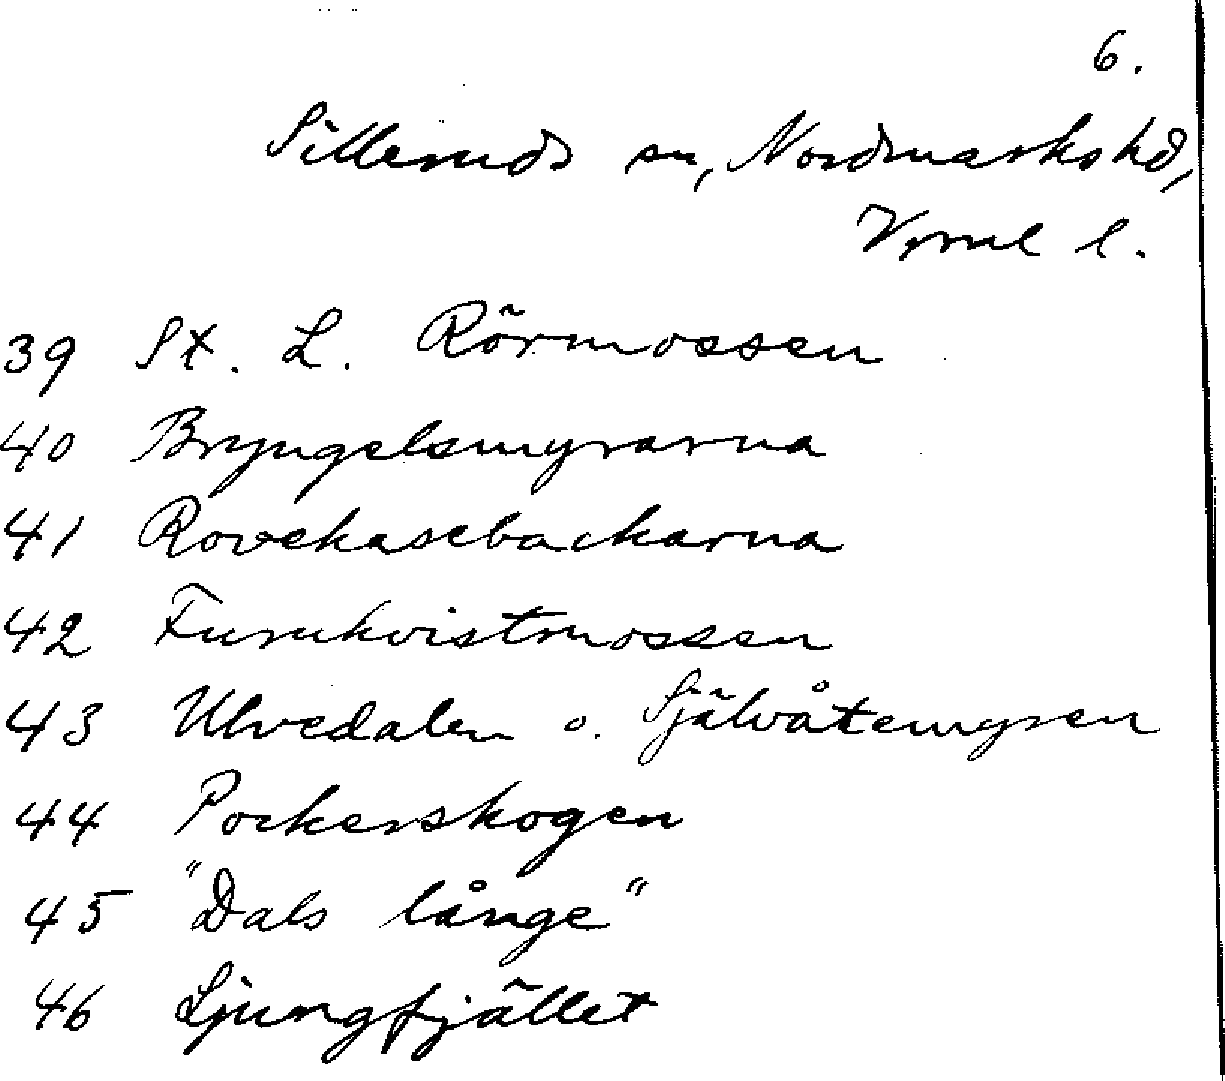 6.
Silleruds sn, Nordmarks hd,
Vrml l.
39 St. L. Rörmossen
40 Bryngelsmyrarna
41 Rovekasebackarna
42 Furukvistmossen
43 Ulvedalen o. Självåtemyren
44 Pockerskogen
45 "Dals långe"
46 Ljungfjället